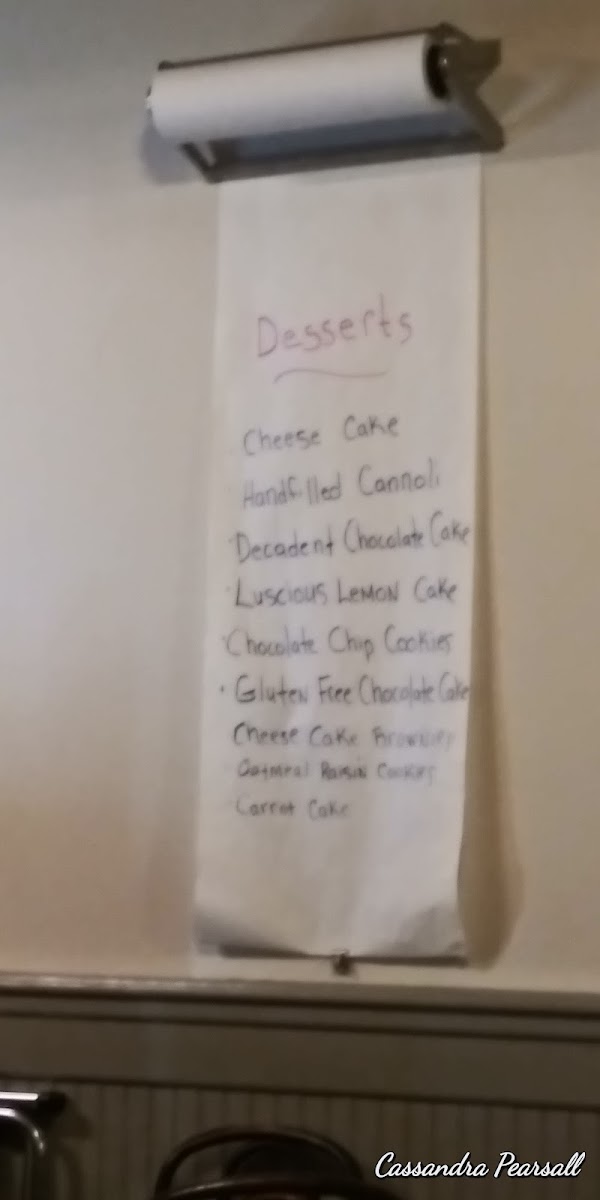 Desserts
Cheese Cake
Handfilled Cannoli
· Decadent Chocolate Cake
· Luscious Lemon Cake
· Chocolate Chip Cookies
· Gluten Free Chocolate Cake
Cheese Cake Brownies
Oatmeal Raisin Cookies
Carrot Cake
Cassandra Pearsall